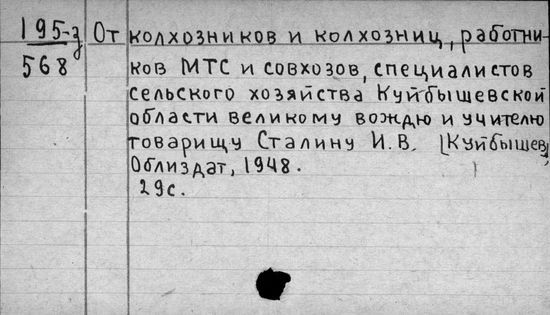 195-з От колхозников и колхозниц, работни-
568 ков МТС и совхозов, специалистов
сельского хозяйства Куйбышевской
области великому вождю и учителю
товарищу Сталину И.В. [Куйбышев,
Облиздат, 1948.
29с.